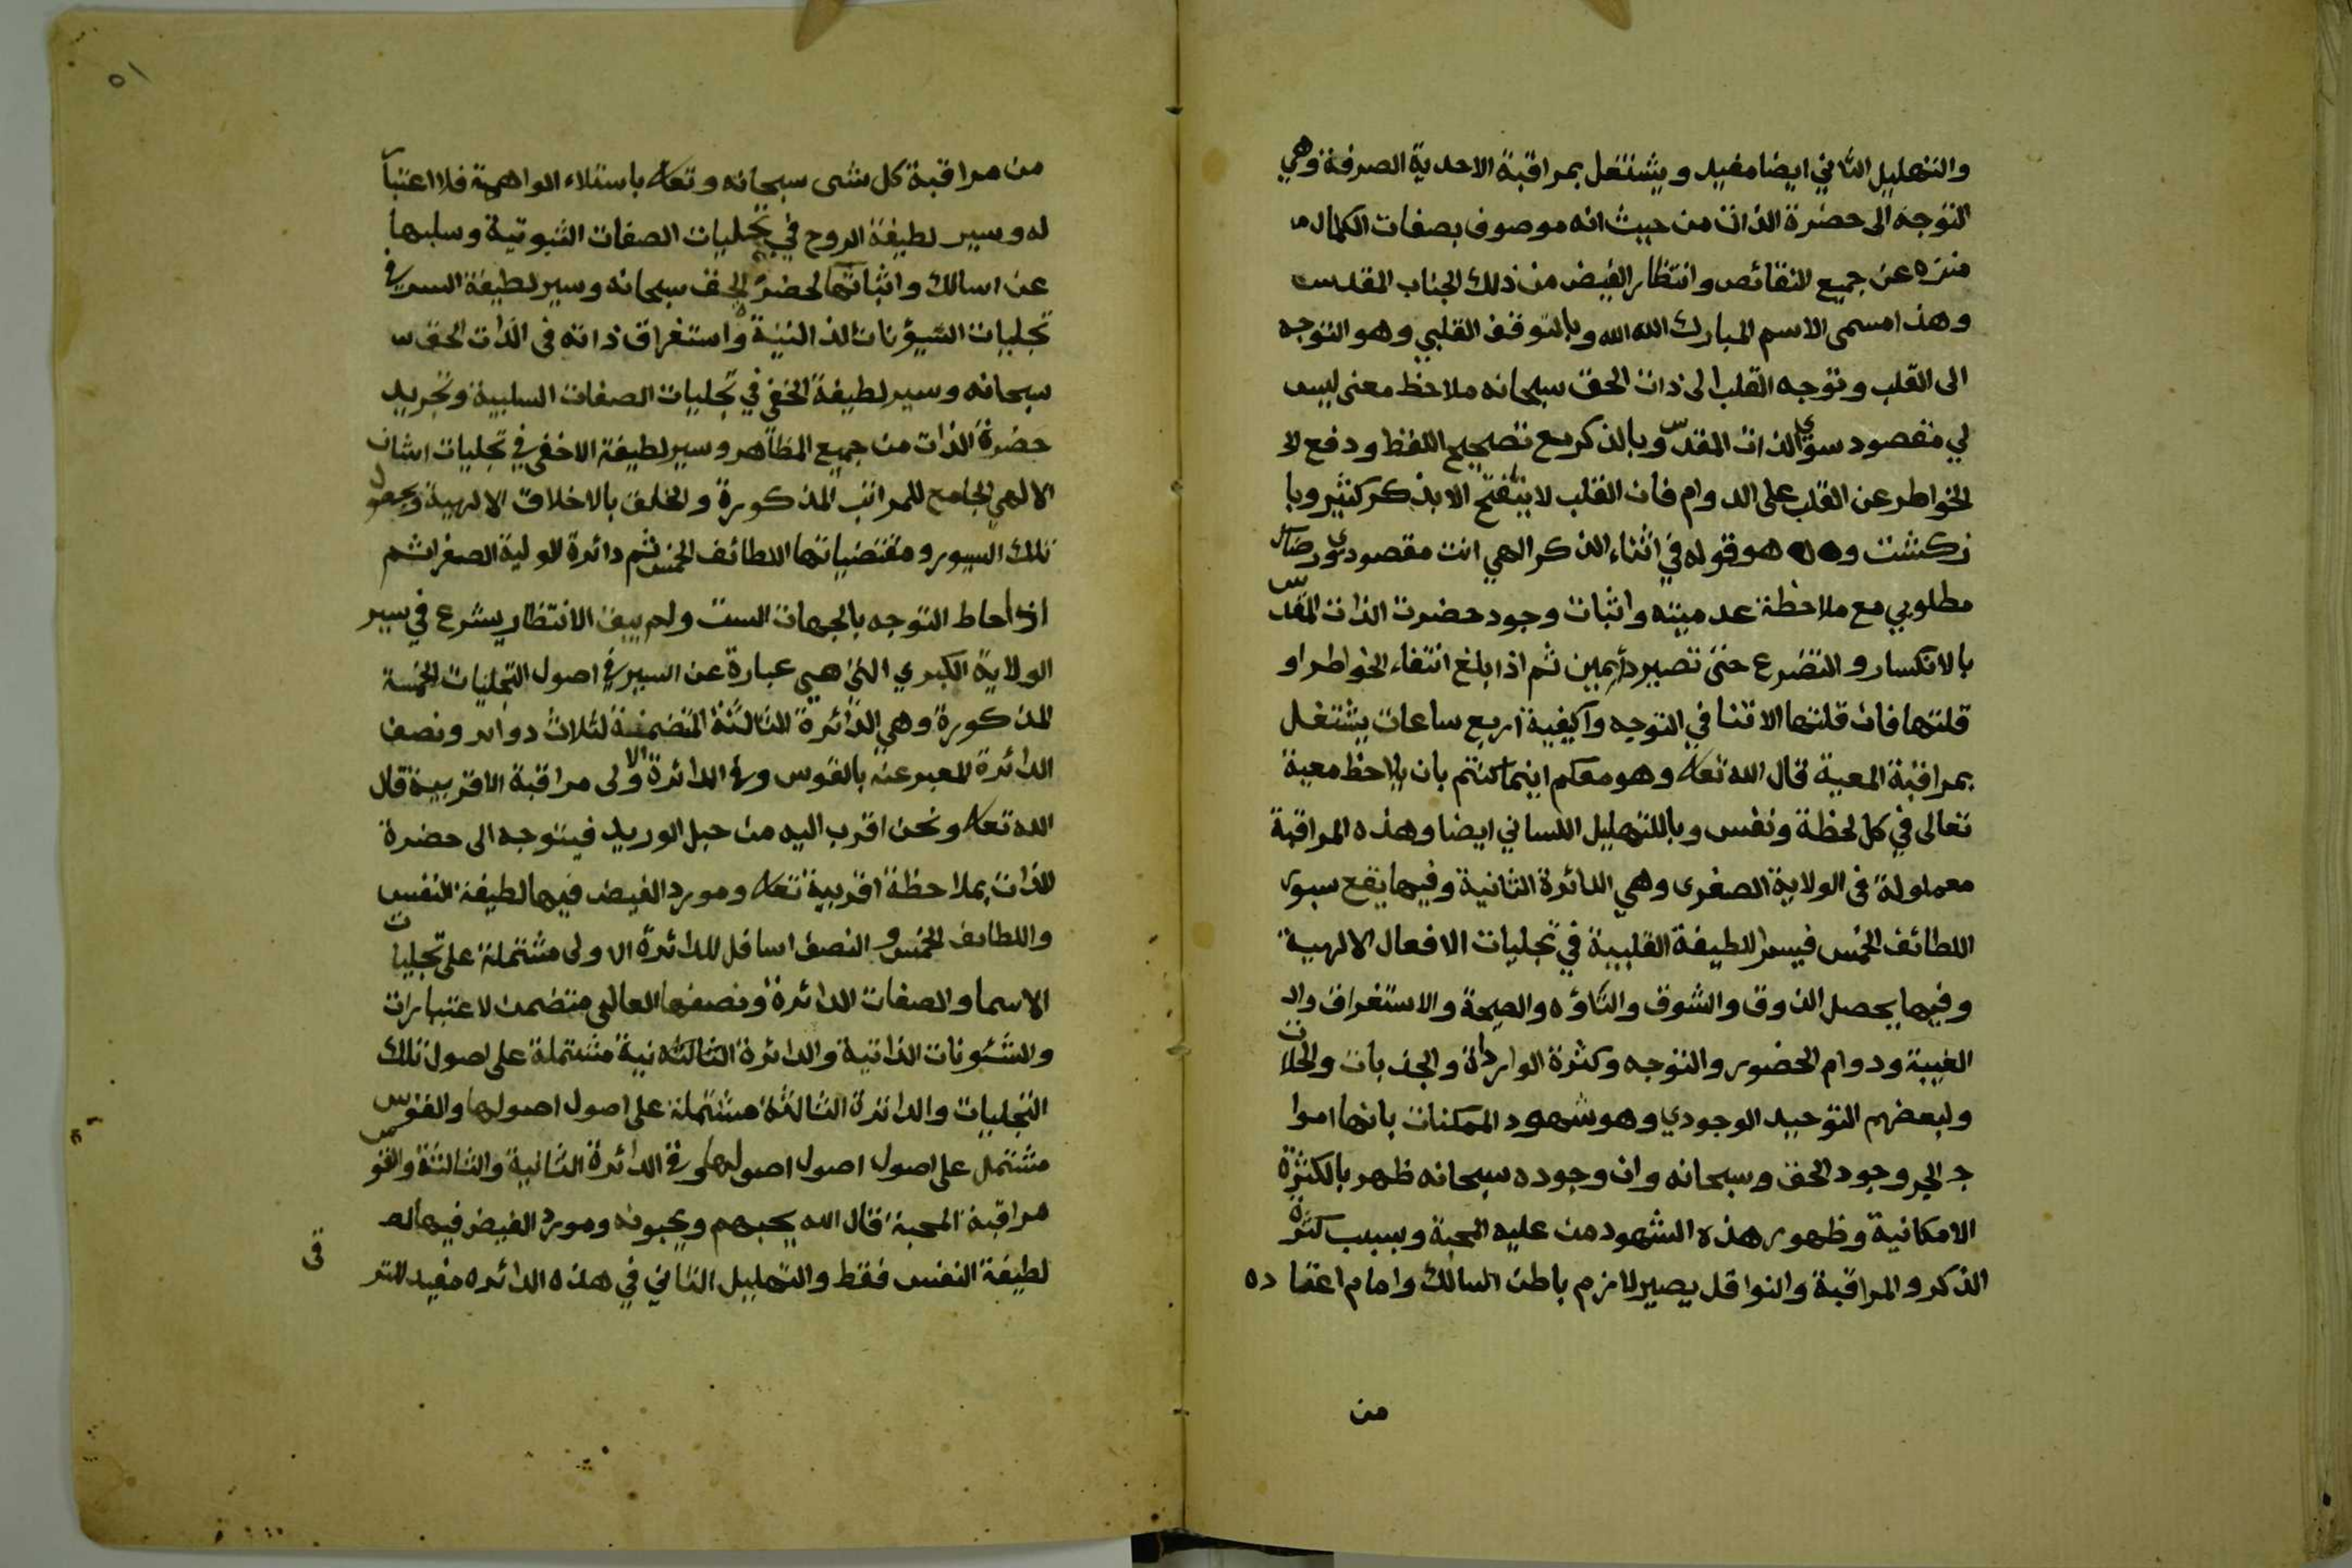 والتهليل الثاني ايضا مفيد ويشتغل بمراقبة الاحدية الصرفة وهي
التوجه الى حضرة الذات من حيث انه موصوف بصفات الكمال
منزه عن جميع النقائص وانتظار الفيض من ذلك الجناب المقدس
وهذا مسمى الاسم المبارك الله الله وبالتوقف القلبي وهو التوجه
الى القلب وتوجه القلب الى ذات الحق سبحانه ملاحظ معنى ليس
لي مقصود سوى الذات المقدس وبالذكر مع تصحيح اللفظ ودفع لا
لخواطر عن القلب على الدوام فان القلب لا ينفتح الا بذكر كثير وبا
زكشت وهو قوله في اثناء الذكر الهي انت مقصودي ورضاك
مطلوبي مع ملاحظة عدميته واثبات وجود حضرت الذات المقدس
بالانكسار والتضرع حتى تصير دأيمين ثم اذا بلغ انتفاء الخواطر او
قلتها فان قلتها الاتنا في التوجه وآكيفية اربع ساعات يشتغل
بمراقبة المعية قال الله تعالى وهو معكم اينما كنتم بان يلاحظ معية
تعالى في كل لحظة ونفس وباللتهليل اللساني ايضا وهذه المراقبة
معملولة في الولاية الصغرى وهي الدائرة الثانية وفيها يقع سيور
اللطائف الخمس فيسر اللطيفة القلبية في تجليات الافعال الالهية
وفيها يحصل الذوق والشوق والتأوه والصيحة والاستغراق وال
الغيبة ودوام الحضور والتوجه وكثرة الواردات والجذبات والحلات
ولبعضهم التوحيد الوجودي وهو شهود الممكنات بانها اموا
ج البحر وجود الحق وسبحانه وان وجوده سبحانه ظهر بالكثرة
الامكانية وظهور هذه الشهود من عليه المحبة وبسبب كثرة
الذكر والمراقبة والنوافل يصير لازم باطن السالك وامام اعتقاده
من
٥١
من مراقبة كل شى سبحانه وتعالى باستلاء الواهمة فلا اعتبار
له وسير لطيفة الروح في تجليات الصفات الثبوتية وسلبها
عن اسالك واثباتها لحضرة الحق سبحانه وسير لطيفة السر في
تجليات الشيؤنات الذالتية واستغراق ذاته فى الذات الحق
سبحانه وسير لطيفة الخفي في تجليات الصفات السلبية وتجريد
حضرة الذات من جميع المظاهر وسير لطيفة الاخفى في تجليات اشان
الالهي الجامع للمراتب المذكورة والخلق بالاخلاق الالهية وبحصول
تلك السيور ومقتضياتها اللطائف الخمس ثم دائرة الولية الصغرا ثم
اذا احاط التوجه بالجهات الست ولم يبق الانتظار يشرع في سير
الولاية الكبري التى هي عبارة عن السير في اصول التجليات الخمسة
المذكورة وهي الدائرة الثالثة المتضمنة لثلاث دوائر ونصف
الدائرة المعبر عنه بالقوس وفي الدائرة الاولى مراقبة الاقربية قال
الله تعالى ونحن اقرب اليه من حبل الوريد فيتوجه الى حضرة
الذات بملاحظة اقربية تعالى ومورد الفيض فيها لطيفة النفس
واللطائف الخمس و النصف اسافل للدائرة الاولى مشتملة على تجليات
الاسما والصفات الدائرة ونصفها العالى متضمن لاعتبارات
والشئونات الذاتية والدائرة الثانية مشتملة على اصول تلك
التجليات والدائرة الثالثة مشتملة على اصول اصولها والقوس
مشتمل على اصول اصول اصولها وفي الدائرة الثانية والثالثة والقوس
مراقبة المحبة قال الله يحبهم ويحبونه ومورد الفيض فيها له
لطيفة النفس فقط والتهليل الثاني في هذه الدائره مفيد للتر
قى